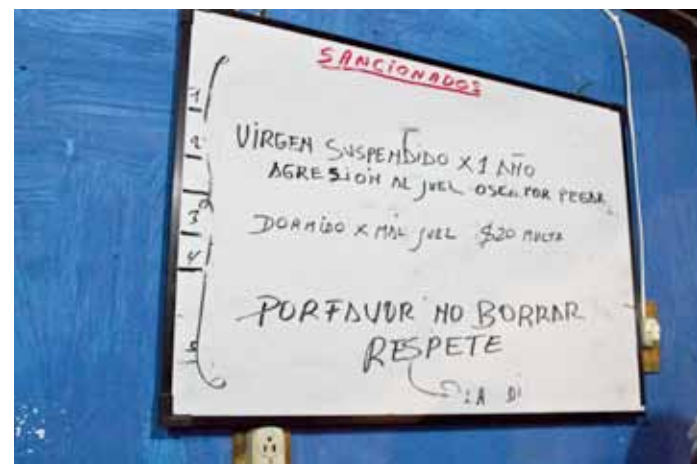 SANCIONADOS
1
2
VIRGEN SUSPENDIDO X 1 AÑO
AGRESION AL JUEL POR PEGAR
3
DORMIDO X MAL JUEL $20 MULTA
4
PORFAVOR NO BORRAR
RESPETE